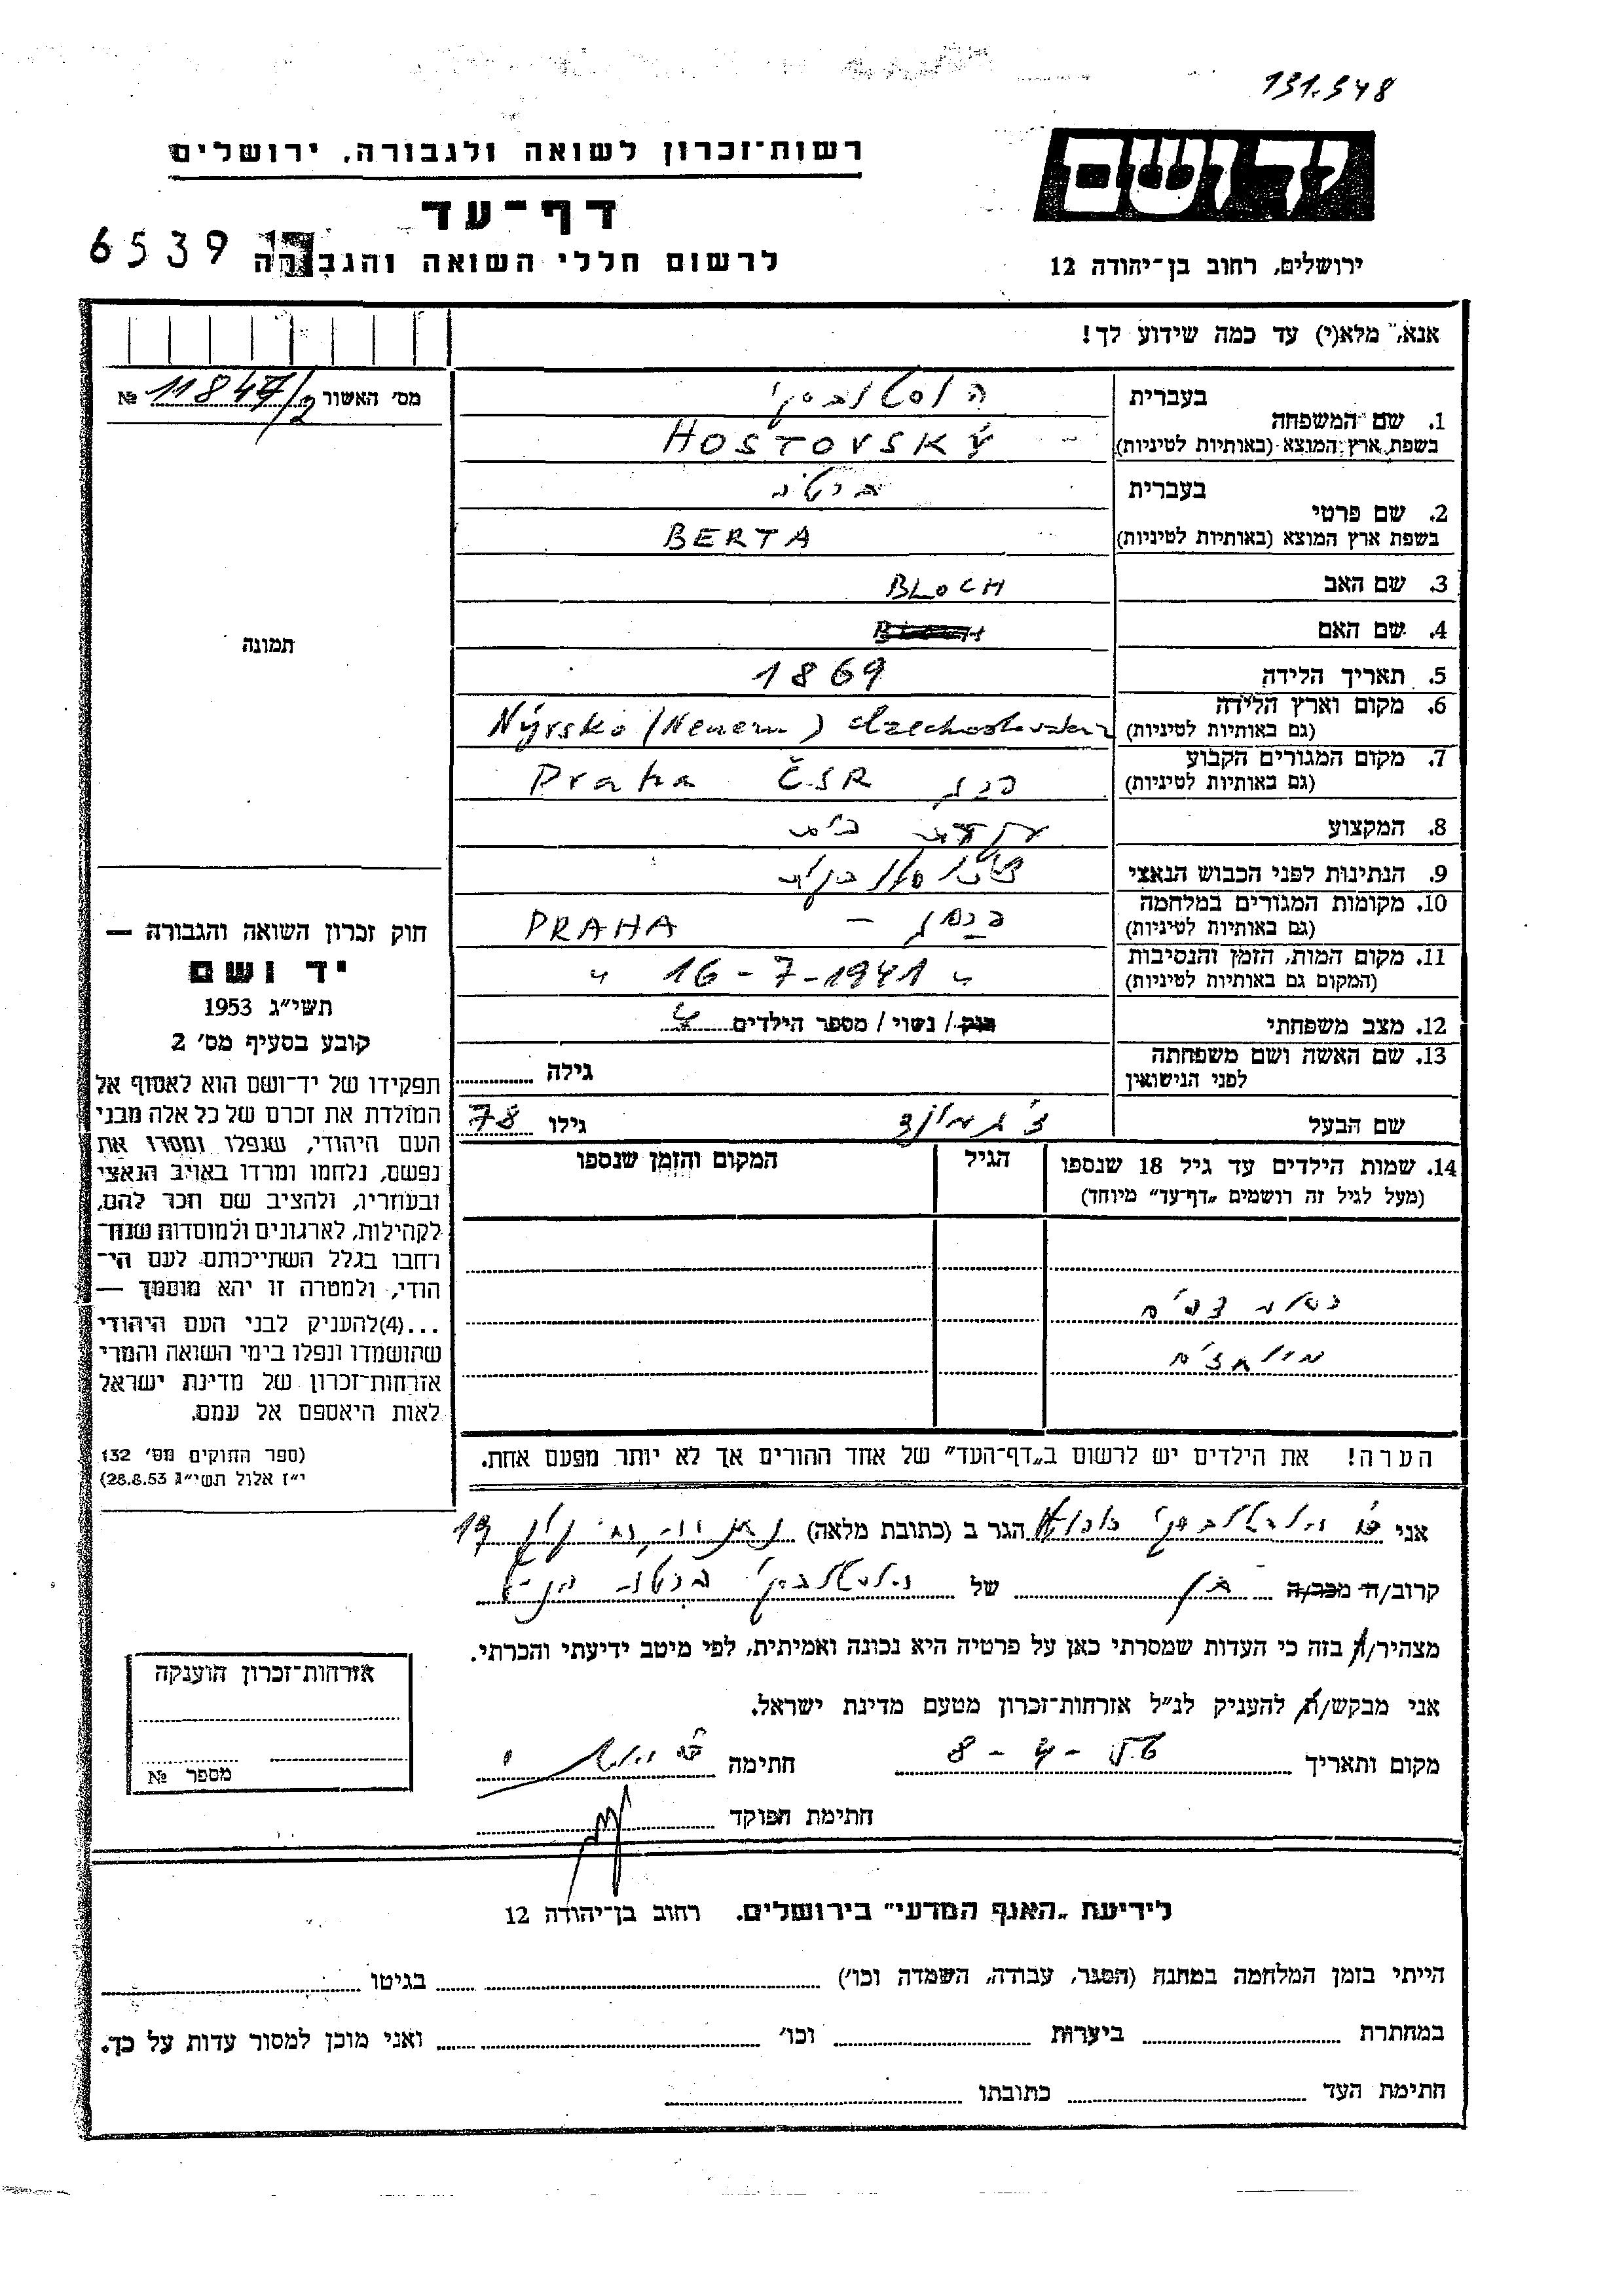 131.548
יד ושם
רשות־זכרון לשואה ולגבורה, ירושלים
דף־עד
לרשום חללי השואה והגבורה
6539
ירושלים, רחוב בן־יהודה 12
אנא, מלא(י) עד כמה שידוע לך!
מס׳ האשור 11847/2 №
1. שם המשפחה
בעברית הוסטובסקי
בשפת ארץ המוצא (באותיות לטיניות) HOSTOVSKÝ
2. שם פרטי
בעברית
בשפת ארץ המוצא (באותיות לטיניות) BERTA
3. שם האב BLOCH
4. שם האם
5. תאריך הלידה 1869
6. מקום וארץ הלידה
(גם באותיות לטיניות) Nýrsko (Neuern) Czechoslovakei
7. מקום המגורים הקבוע
(גם באותיות לטיניות) פרג Praha ČSR
8. המקצוע עקרת בית
9. הנתינות לפני הכבוש הנאצי
10. מקומות המגורים במלחמה
(גם באותיות לטיניות) – PRAHA
11. מקום המות, הזמן והנסיבות
(המקום גם באותיות לטיניות) " 16-7-1941 "
12. מצב משפחתי רוק / נשוי / מספר הילדים 4
13. שם האשה ושם משפחתה
לפני הנישואין
גילה
שם הבעל זיגמונד גילו 78
14. שמות הילדים עד גיל 18 שנספו
(מעל לגיל זה רושמים „דף־עד״ מיוחד)
הגיל
המקום והזמן שנספו
הערה! את הילדים יש לרשום ב„דף־העד״ של אחד ההורים אך לא יותר מפעם אחת.
תמונה
חוק זכרון השואה והגבורה —
יד ושם
תשי״ג 1953
קובע בסעיף מס׳ 2
תפקידו של יד־ושם הוא לאסוף אל
המולדת את זכרם של כל אלה מבני
העם היהודי, שנפלו ומסרו את
נפשם, נלחמו ומרדו באויב הנאצי
ובעוזריו, ולהציב שם וזכר להם,
לקהילות, לארגונים ולמוסדות שנח־
רחבו בגלל השתייכותם לעם הי־
הודי, ולמטרה זו יהא מוסמך —
...(4)להעניק לבני העם היהודי
שהושמדו ונפלו בימי השואה והמרי
אזרחות־זכרון של מדינת ישראל
לאות היאספם אל עמם.
(ספר החוקים מס׳ 132
י״ז אלול תשי״ג 28.8.53)
אני הוסטובסקי הגר ב (כתובת מלאה) 19
קרוב/ה מכר/ה בן של הוסטובסקי ברטה
מצהיר/ה בזה כי העדות שמסרתי כאן על פרטיה היא נכונה ואמיתית, לפי מיטב ידיעתי והכרתי.
אני מבקש/ת להעניק לנ״ל אזרחות־זכרון מטעם מדינת ישראל.
מקום ותאריך 8-4-56 חתימה
חתימת הפוקד
אזרחות־זכרון הוענקה
מספר №
לידיעת „האגף המדעי״ בירושלים. רחוב בן־יהודה 12
הייתי בזמן המלחמה במחנה (הסגר, עבודה, השמדה וכו׳) בגיטו
במחתרת ביערות וכו׳ ואני מוכן למסור עדות על כך.
חתימת העד כתובתו